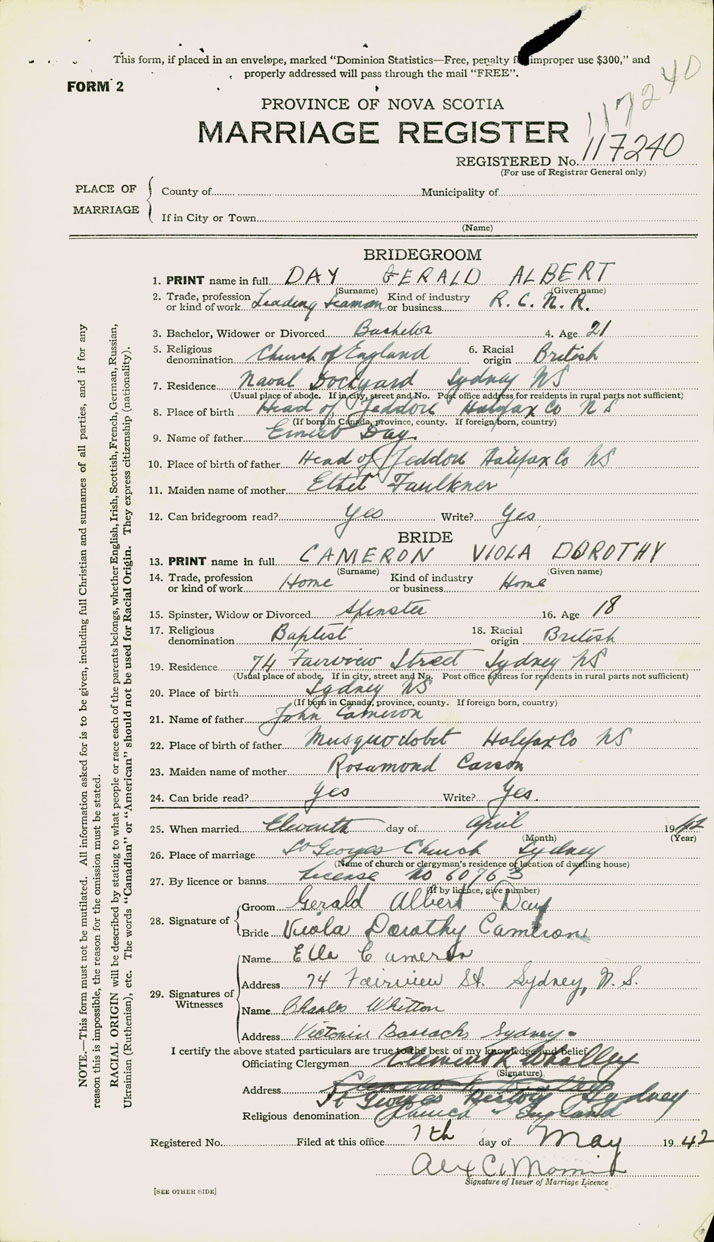 This form, if placed in an envelope, marked "Dominion Statistics—Free, penalty improper use $300," and
properly addressed will pass through the mail "FREE".
FORM 2
117240
PROVINCE OF NOVA SCOTIA
MARRIAGE REGISTER
REGISTERED No. 117240
(For use of Registrar General only)
PLACE OF MARRIAGE
County of Municipality of
If in City or Town
(Name)
BRIDEGROOM
1. PRINT name in full DAY GERALD ALBERT
(Surname) (Given name)
2. Trade, profession or kind of work Leading Seaman Kind of industry or business R.C.N.R.
3. Bachelor, Widower or Divorced Bachelor 4. Age 21
5. Religious denomination Church of England 6. Racial origin British
7. Residence Naval Dockyard Sydney NS
(Usual place of abode. If in city, street and No. Post office address for residents in rural parts not sufficient)
8. Place of birth Head of Jeddore Halifax Co NS
(If born in Canada, province, county. If foreign born, country)
9. Name of father Ernest Day
10. Place of birth of father Head of Jeddore Halifax Co NS
11. Maiden name of mother Ethel Faulkner
12. Can bridegroom read? Yes Write? Yes
BRIDE
13. PRINT name in full CAMERON VIOLA DOROTHY
(Surname) (Given name)
14. Trade, profession or kind of work Home Kind of industry or business Home
15. Spinster, Widow or Divorced Spinster 16. Age 18
17. Religious denomination Baptist 18. Racial origin British
19. Residence 74 Fairview Street Sydney NS
(Usual place of abode. If in city, street and No. Post office address for residents in rural parts not sufficient)
20. Place of birth Sydney NS
(If born in Canada, province, county. If foreign born, country)
21. Name of father John Cameron
22. Place of birth of father Musquodobit Halifax Co NS
23. Maiden name of mother Rosamond Carson
24. Can bride read? Yes Write? Yes.
25. When married Eleventh day of April 1942
(Month) (Year)
26. Place of marriage St Georges Church Sydney
(Name of church or clergyman's residence or location of dwelling house)
27. By licence or banns License No 60763
(If by licence, give number)
28. Signature of
Groom Gerald Albert Day
Bride Viola Dorothy Cameron
29. Signatures of Witnesses
Name Elle Cameron
Address 74 Fairview St. Sydney, N.S.
Name Charles Whitton
Address Victoria Sydney
I certify the above stated particulars are true to the best of my knowledge and belief
Officiating Clergyman
(Signature)
Address St Georges Rectory Sydney
Religious denomination Church England
Registered No. Filed at this office 7th day of May 1942
Alex C.
Signature of Issuer of Marriage Licence
[SEE OTHER SIDE]
NOTE.—This form must not be mutilated. All information asked for is to be given, including full Christian and surnames of all parties, and if for any
reason this is impossible, the reason for the omission must be stated.
RACIAL ORIGIN will be described by stating to what people or race each of the parents belongs, whether English, Irish, Scottish, French, German, Russian,
Ukrainian (Ruthenian), etc. The words "Canadian" or "American" should not be used for Racial Origin. They express citizenship (nationality).